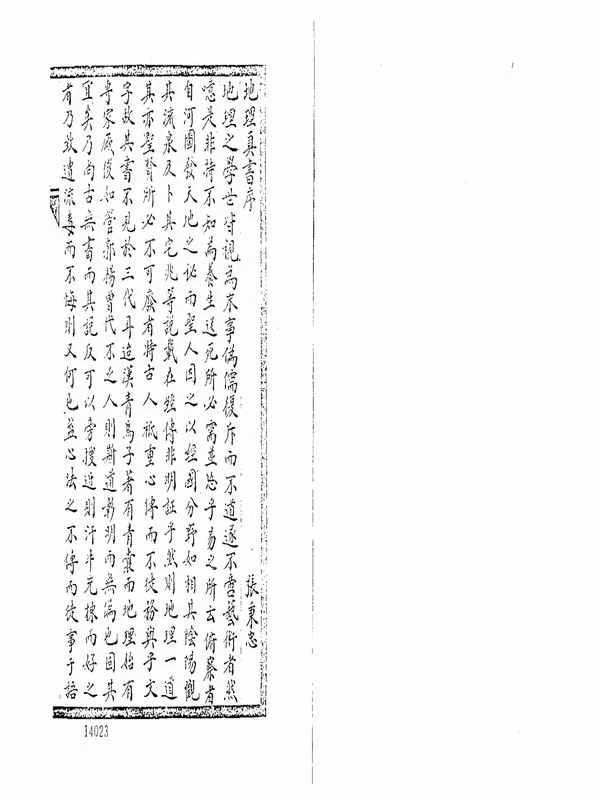 地理真書序
張秉忠
地理之學世皆視為末事偽儒復斥而不道遂不啻藝術者然
噫是非特不知為養生送死所必需並忽乎易之所云俯察者
自河圖發天地之秘而聖人因之以經國分野如相其陰陽觀
其流泉及卜其宅兆等說載在經傳非明証乎然則地理一道
其亦聖賢所必不可廢者特古人祗重心傳而不徒務與乎文
字故其書不見於三代耳迨漢青烏子著有青囊而地理始有
專家厥後如管郭楊曾代不乏人則斯道彰明而無漏也固其
宜矣乃尚古無書而其說反可以旁搜近則汗牛充棟而好之
者乃致遺流毒而不悔則又何也並心法之不傳而徒事于語
14023